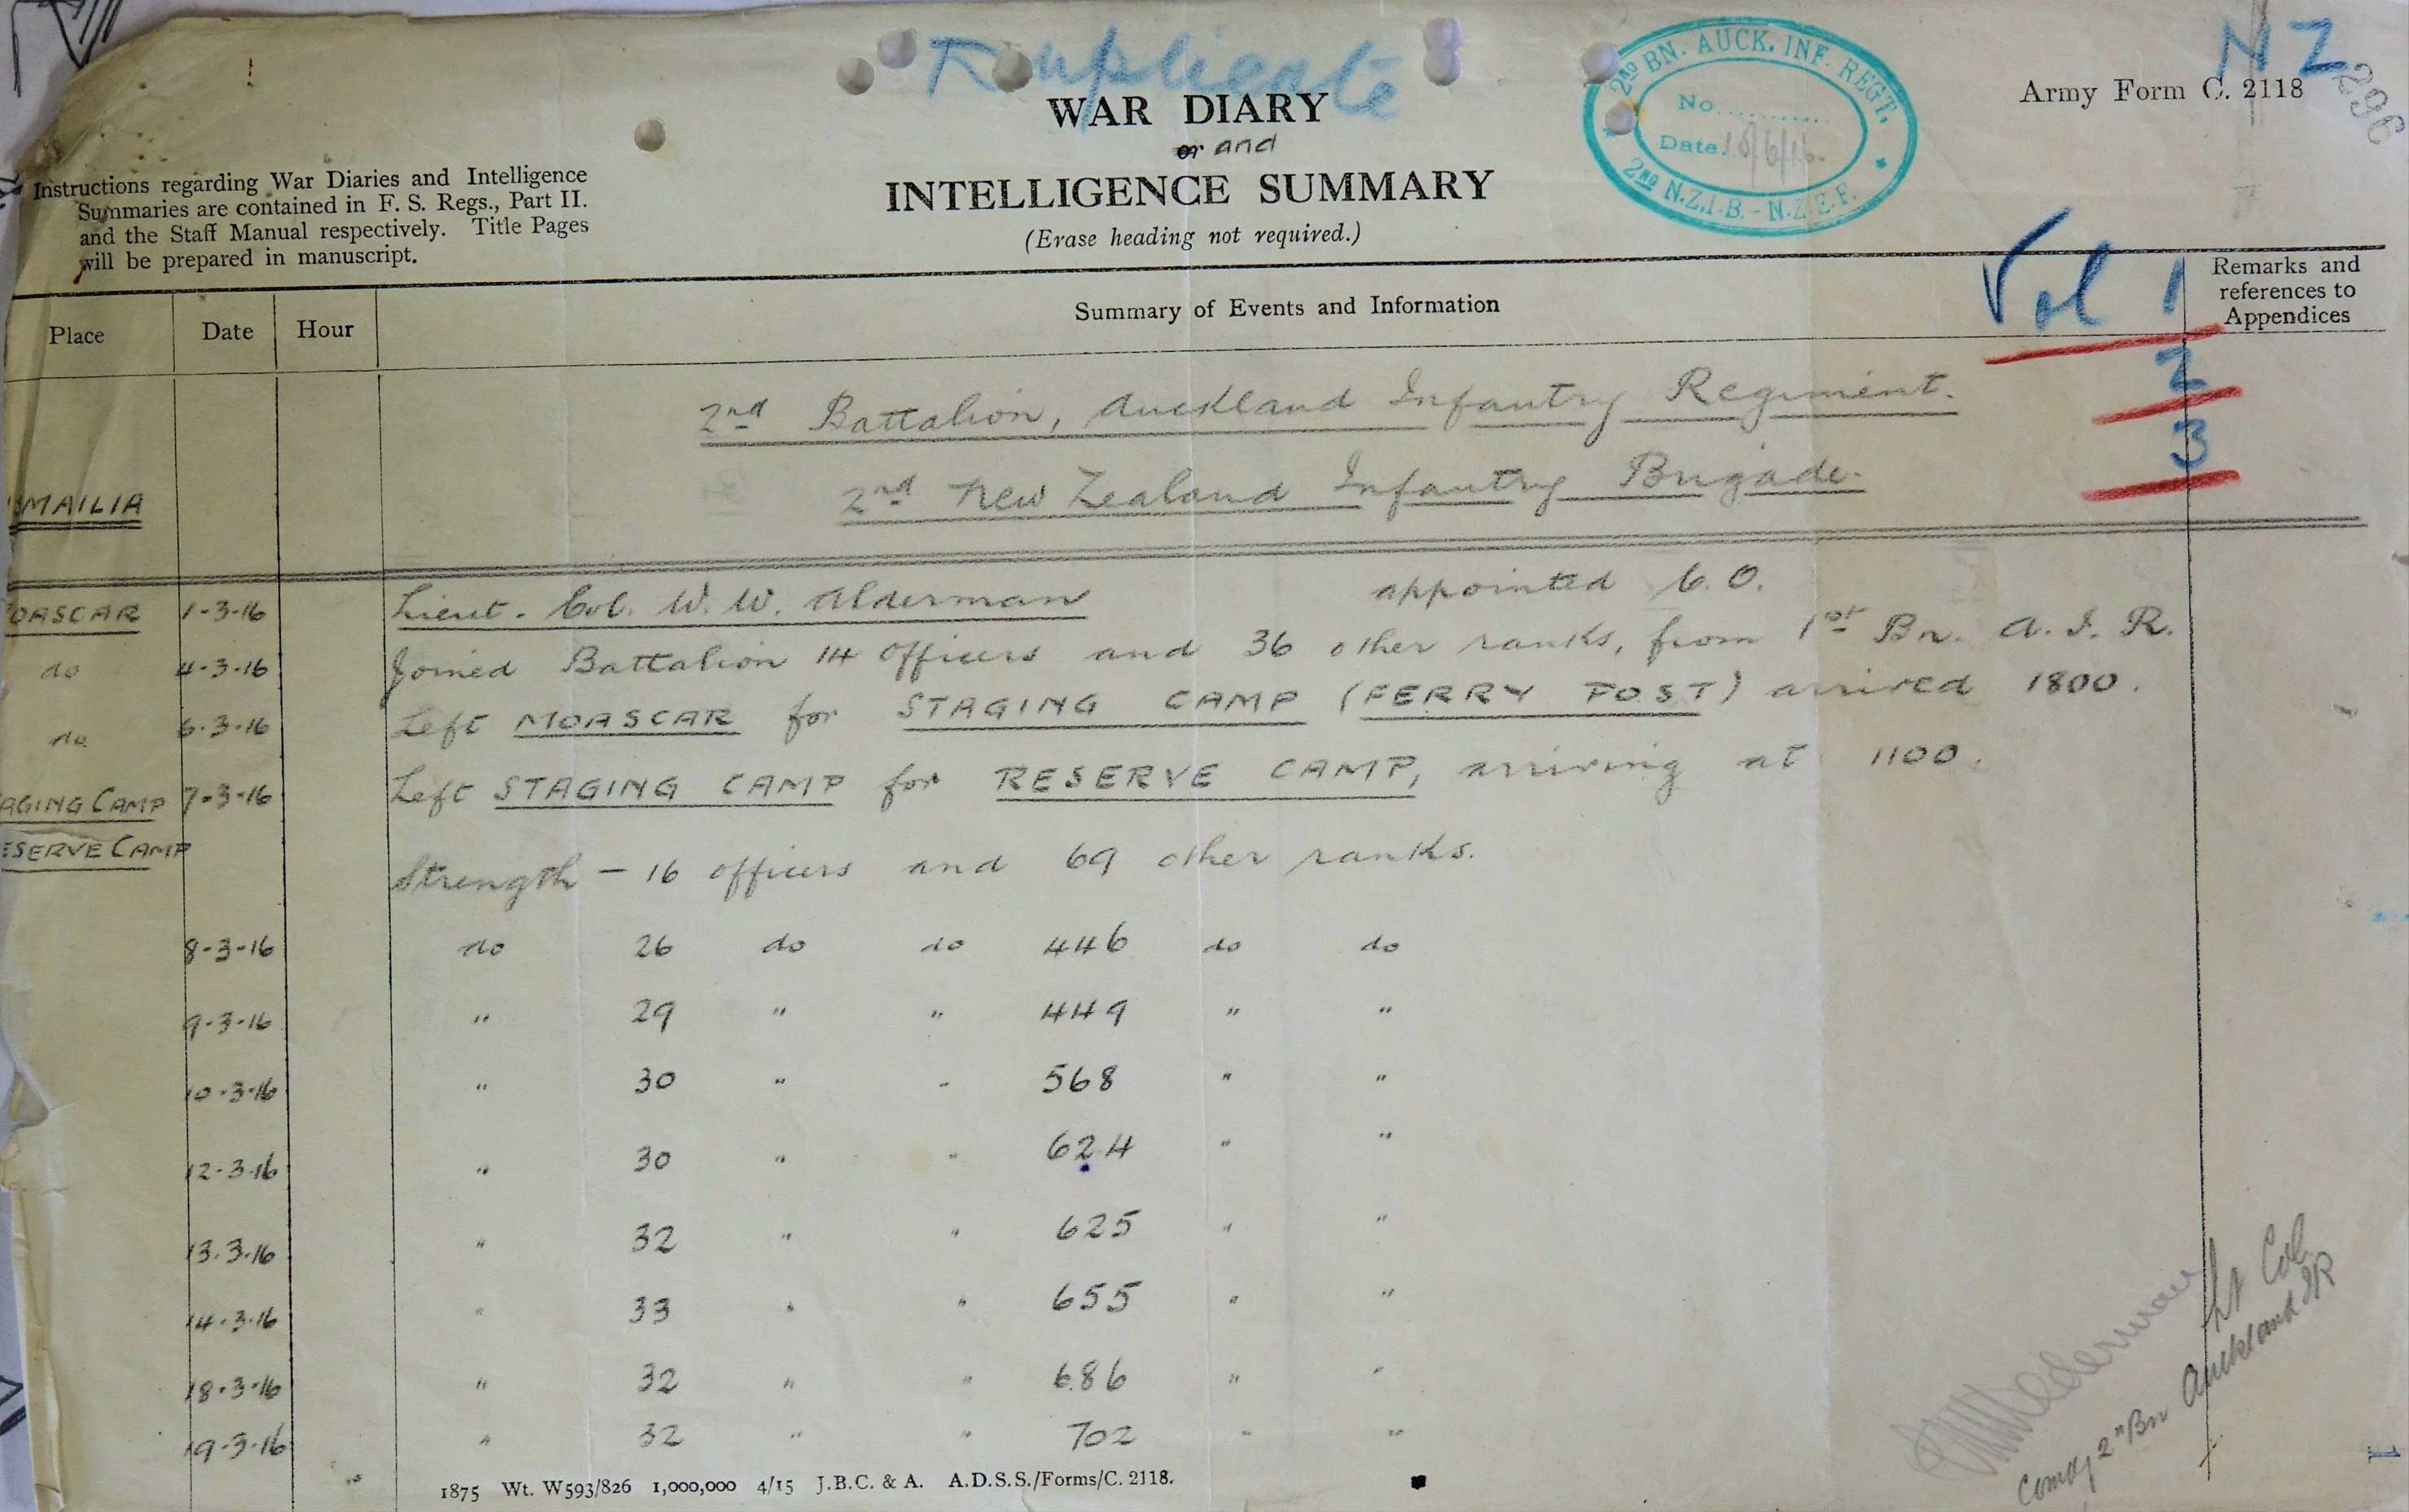 Duplicate
NZ
296
2ND BN. AUCK. INF. REGT.
No............
Date.
2ND N.Z.I.B. - N.Z.E.F.
Army Form C. 2118
WAR DIARY
or and
INTELLIGENCE SUMMARY
(Erase heading not required.)
Instructions regarding War Diaries and Intelligence
Summaries are contained in F. S. Regs., Part II.
and the Staff Manual respectively. Title Pages
will be prepared in manuscript.
Place Date Hour Summary of Events and Information Remarks and references to Appendices
Vol 1
2
3
2nd Battalion, Auckland Infantry Regiment.
2nd New Zealand Infantry Brigade.
SMAILIA
OASCAR 1-3-16 Lieut. Col. W. W. Alderman appointed C.O.
do 4-3-16 Joined Battalion 14 officers and 36 other ranks, from 1st Bn. A.I.R.
do 6.3-16 Left MOASCAR for STAGING CAMP (FERRY POST) arrived 1800.
AGING CAMP 7-3-16 Left STAGING CAMP for RESERVE CAMP, arriving at 1100.
ESERVE CAMP Strength - 16 officers and 69 other ranks.
8-3-16 do 26 do do 446 do do
9-3-16 " 29 " " 449 " "
10-3-16 " 30 " " 568 " "
12-3-16 " 30 " " 624 " "
13.3-16 " 32 " " 625 " "
14-3-16 " 33 " " 655 " "
18-3-16 " 32 " " 686 " "
19-3-16 " 32 " " 702 " "
Alderman Lt Col
Comdg 2nd Bn Auckland IR
1875 Wt. W593/826 1,000,000 4/15 J.B.C. & A. A.D.S.S./Forms/C. 2118.
1